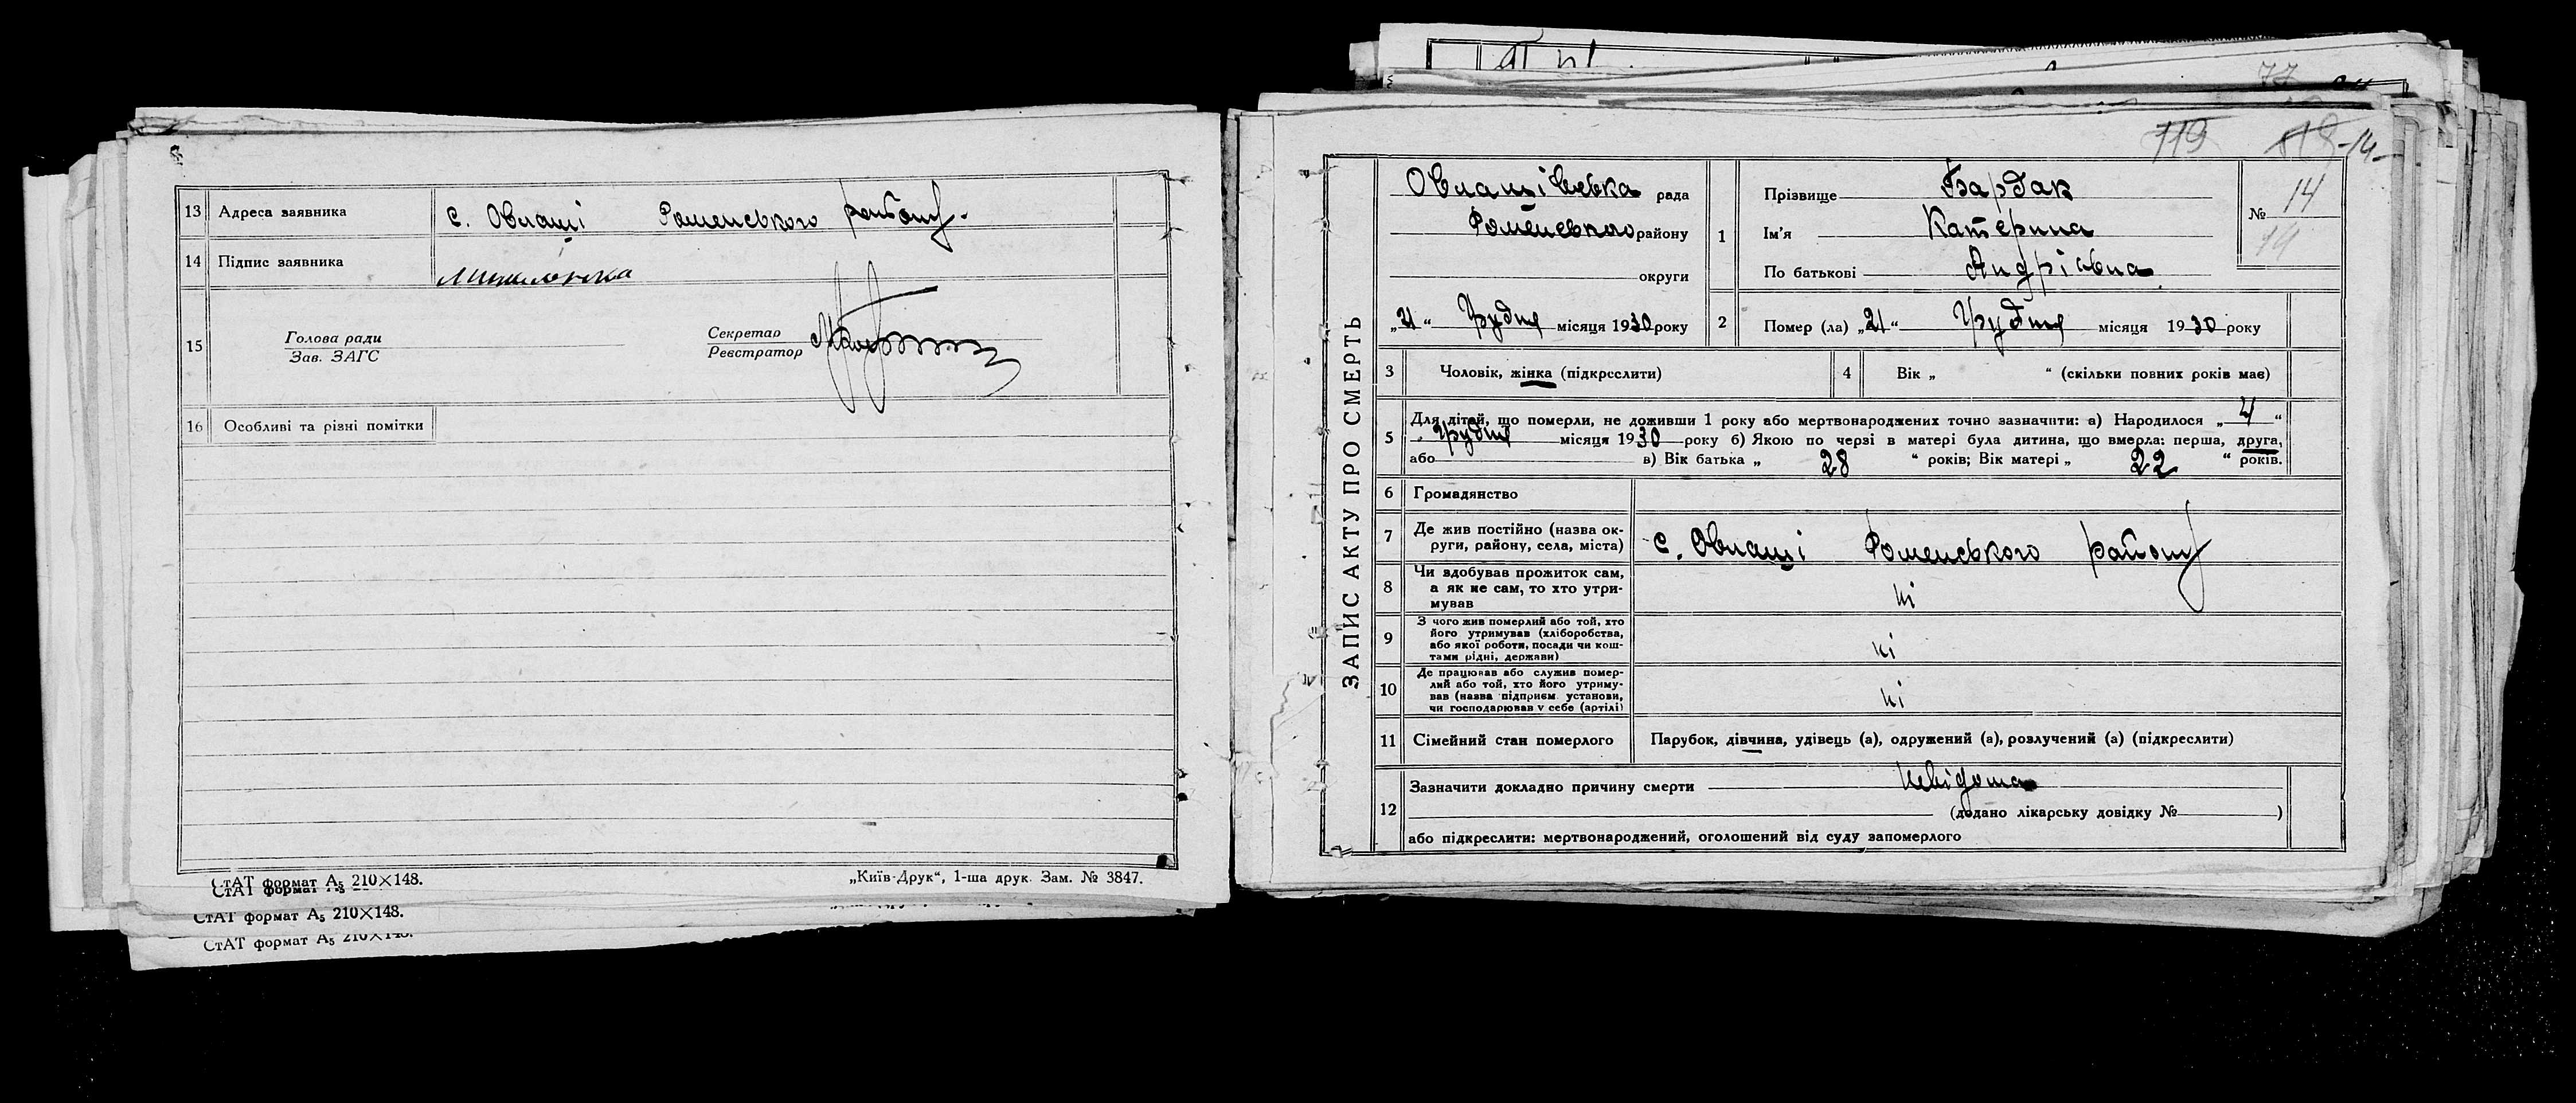 13 Адреса заявника с. Овлаші Роменського району.
14 Підпис заявника
15 Голова ради
Зав. ЗАГС
Секретар
Реєстратор
16 Особливі та різні помітки
СтАТ формат А5 210×148.
„Київ-Друк“, 1-ша друк. Зам. № 3847.
СтАТ формат А5 210×148.
СтАТ формат А5 210×148.
77
119 118 -14-
ЗАПИС АКТУ ПРО СМЕРТЬ
Овлашівська рада
Роменського району
округи
„21“ Грудня місяця 1930 року
1 Прізвище Бардак
Ім'я Катерина
По батькові Андріївна
№ 14
14
2 Помер (ла) „21“ Грудня місяця 1930 року
3 Чоловік, жінка (підкреслити)
4 Вік „ “ (скільки повних років має)
5 Для дітей, що померли, не доживши 1 року або мертвонароджених точно зазначити: а) Народилося „4“
Грудня місяця 1930 року б) Якою по черзі в матері була дитина, що вмерла: перша, друга,
або в) Вік батька „ 28 “ років; Вік матері „ 22 “ років.
6 Громадянство
7 Де жив постійно (назва ок-
руги, району, села, міста) с. Овлаші Роменського району
8 Чи здобував прожиток сам,
а як не сам, то хто утри-
мував ні
9 З чого жив померлий або той, хто
його утримував (хліборобства,
або якої роботи, посади чи кош-
тами рідні, держави) ні
10 Де працював або служив помер-
лий або той, хто його утриму-
вав (назва підприєм. установи,
чи господарював у себе (артілі) ні
11 Сімейний стан померлого Парубок, дівчина, удівець (а), одружений (а), розлучений (а) (підкреслити)
12 Зазначити докладно причину смерти невідома
(додано лікарську довідку № )
або підкреслити: мертвонароджений, оголошений від суду запомерлого